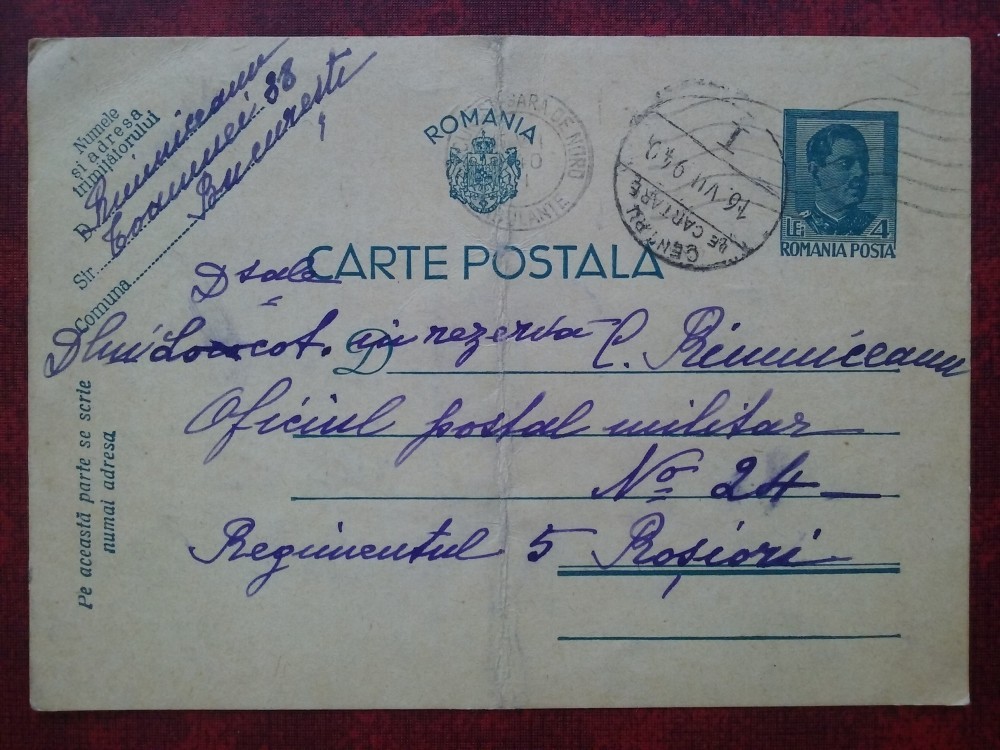 Numele
și adresa
trimițătorului
D Rimniceanu
Str. Toamnei 88
Comuna București
ROMANIA
GARA DE NORD
AMBULANTE
CENTRU DE CARTARE
16. VII 942
I
LEI 4
ROMANIA POSTA
CARTE POSTALA
Dsale
Dlui Locot. in rezervă C. Rimniceanu
D
Oficiul postal militar
No 24
Regimentul 5 Roșiori
Pe această parte se scrie
numai adresa